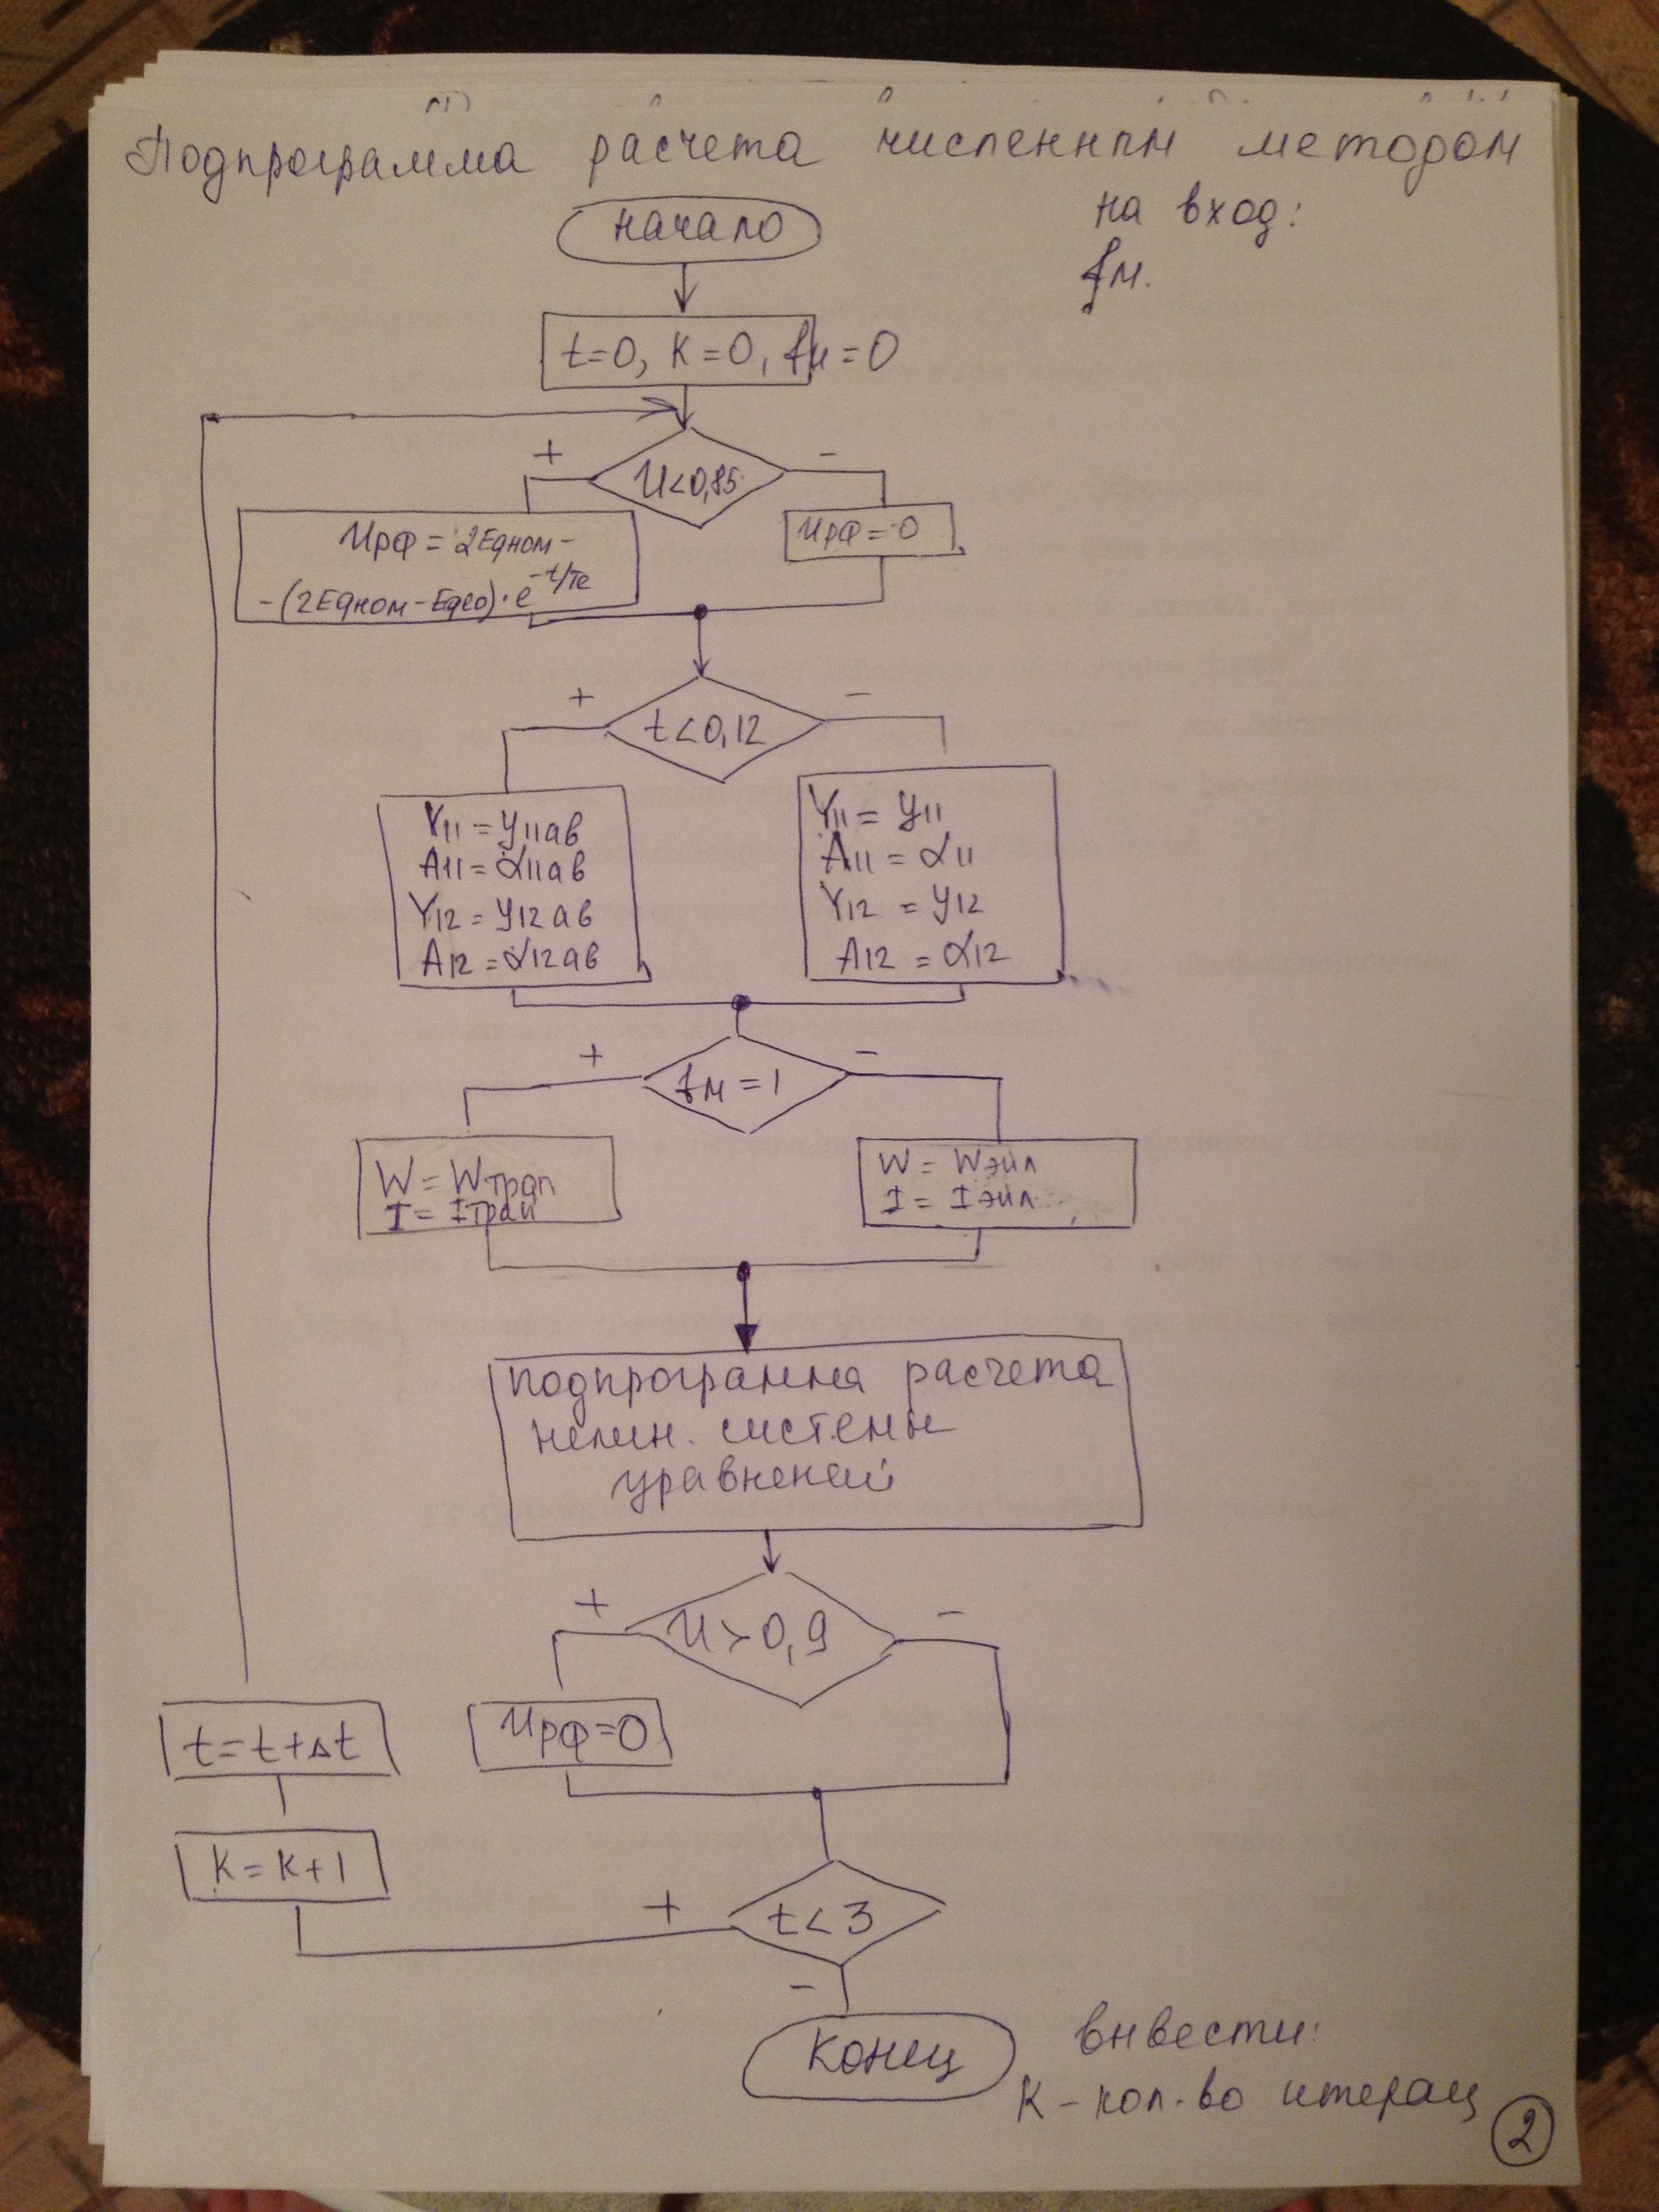 Подпрограмма расчета численным методом
на вход:
fм.
начало
t=0, K=0, fм=0
+
U<0,85
-
Uрф = 2Eqном -
-(2Eqном-Eqeo)·e^-t/Te
Uрф = 0
+
t<0,12
-
Y11 = y11ав
A11 = α11ав
Y12 = y12ав
A12 = α12ав
Y11 = y11
A11 = α11
Y12 = y12
A12 = α12
+
fм = 1
-
W = Wтрап
I = Iтрап
W = Wэйл
I = Iэйл
подпрограмма расчета
нелин. системы
уравнений
+
U>0,9
-
t=t+Δt
Uрф=0
K=K+1
+
t<3
-
конец
вывести:
K - кол-во итерац
2